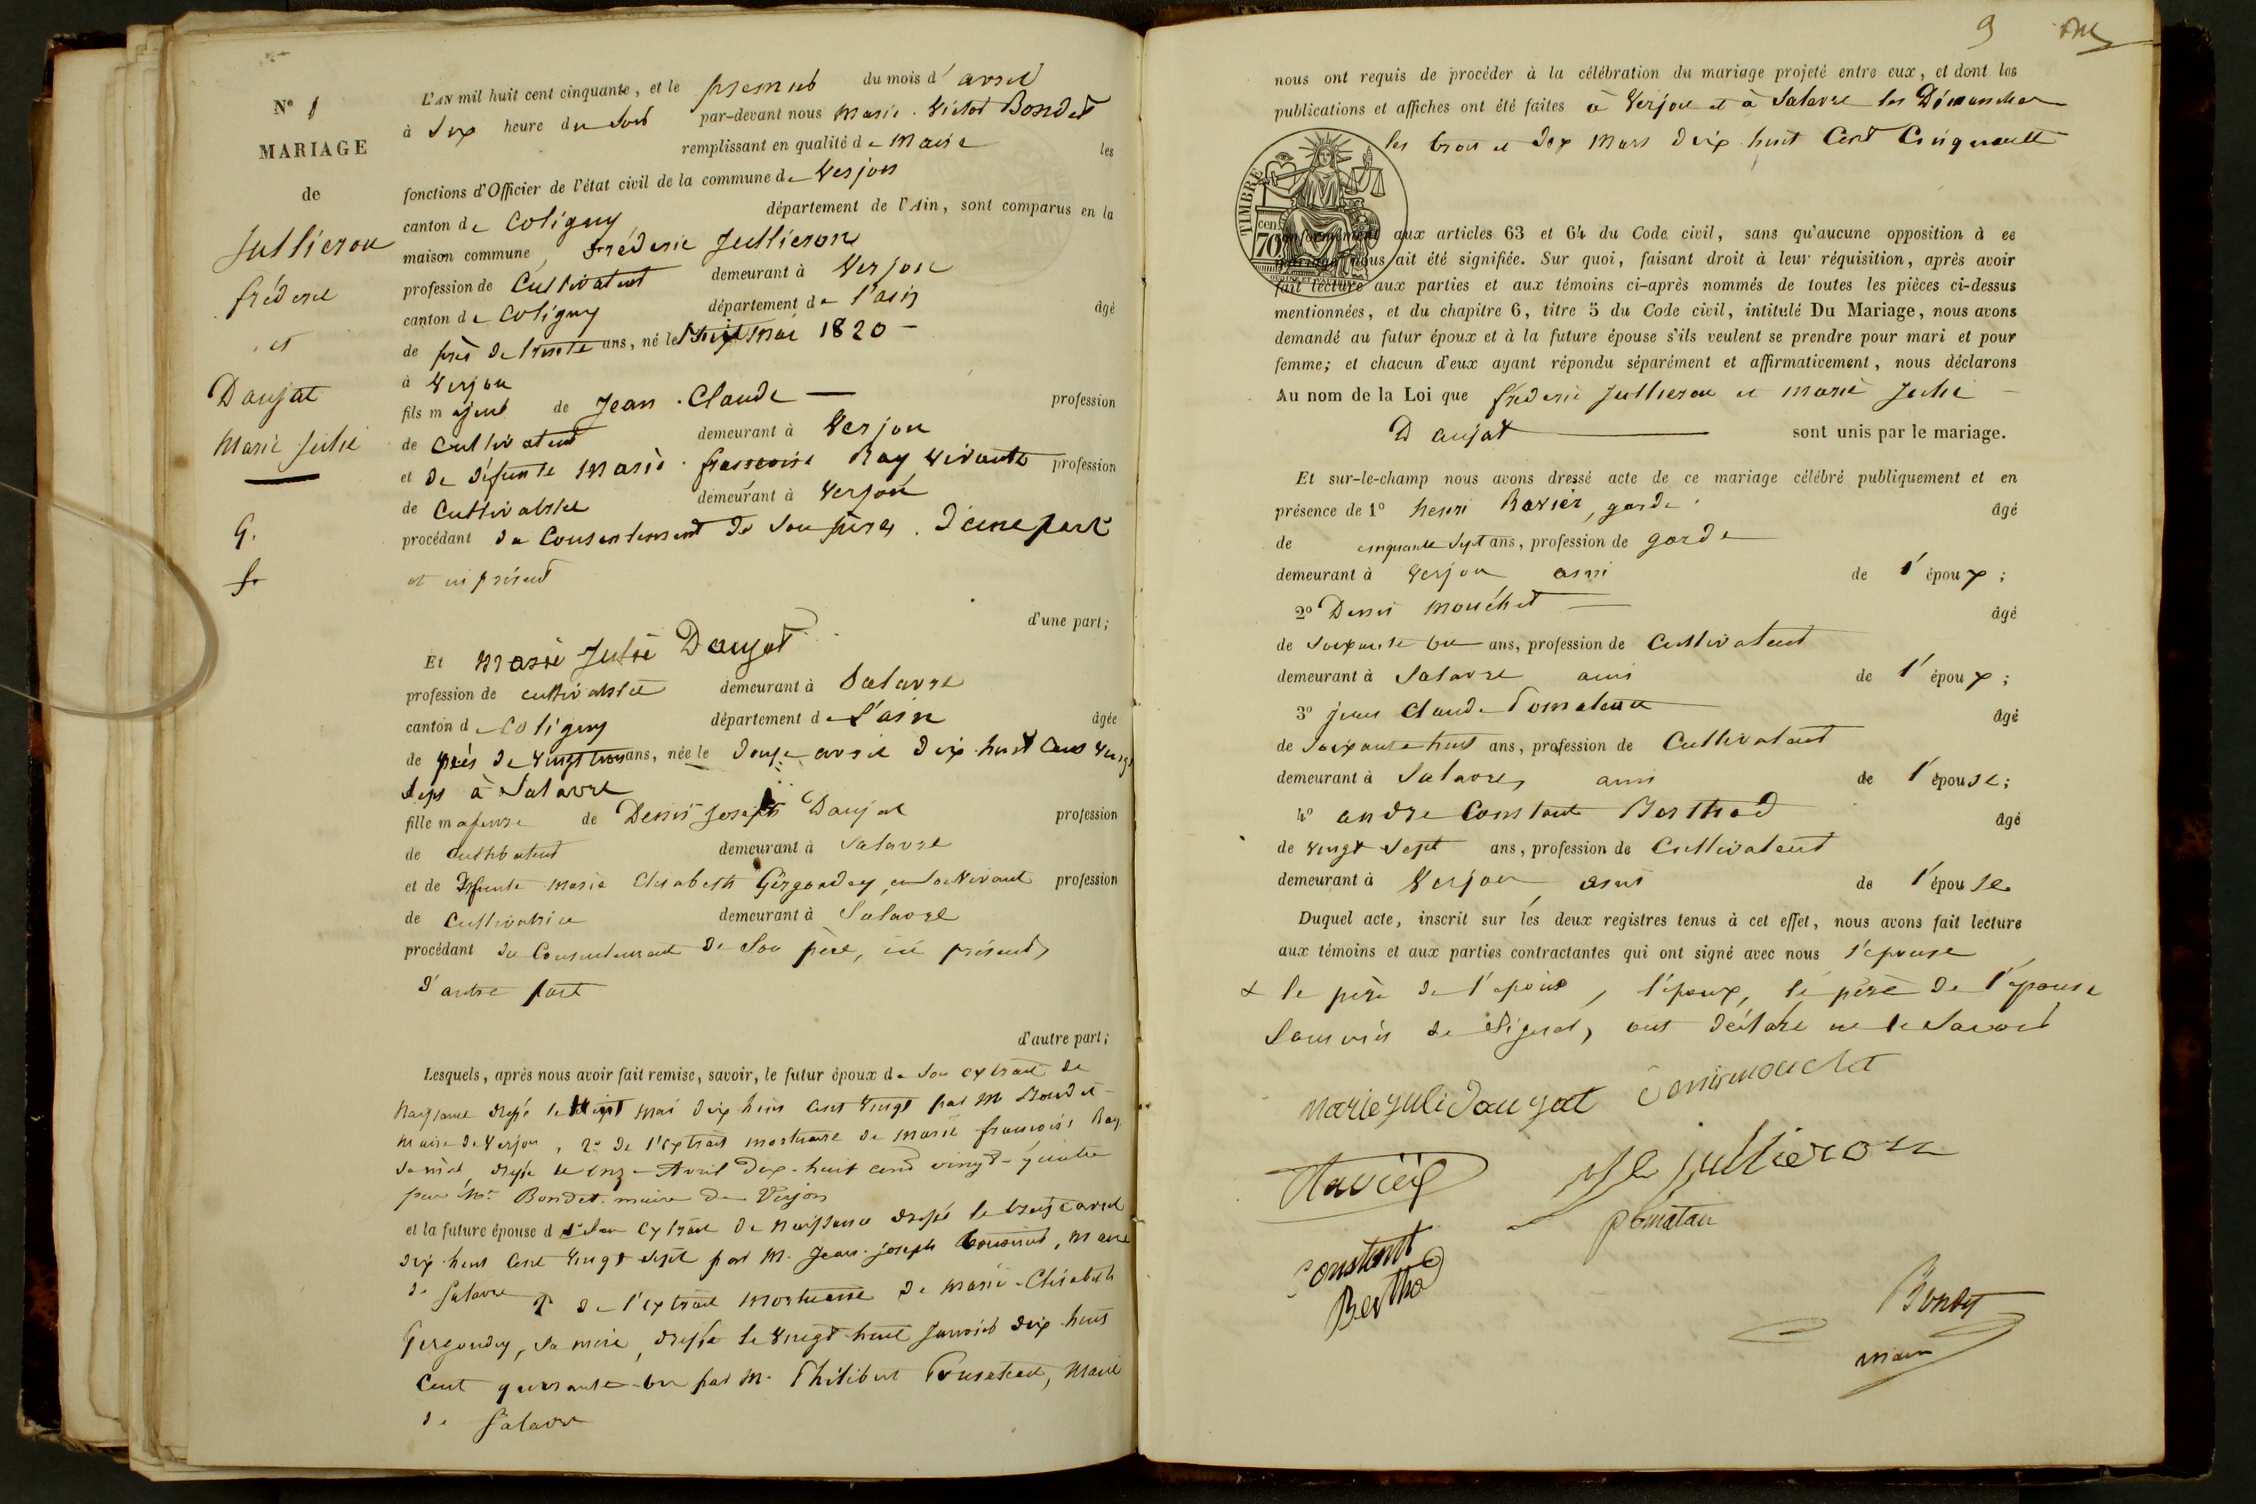 N° 1
MARIAGE
de
Jullieron
fréderic
et
Daujat
Marie Julie
G.
f.
L'AN mil huit cent cinquante, et le premier du mois d'avril
à six heure du soir par-devant nous Marie. Victor Bondet
remplissant en qualité de Maire les
fonctions d'Officier de l'état civil de la commune de Verjon
canton de Coligny département de l'Ain, sont comparus en la
maison commune, Fréderic Jullieron
profession de Cultivateur demeurant à Verjon
canton de Coligny département de l'ain âgé
de près de trente ans, né le huit Mai 1820 -
à Verjon
fils majeur de Jean. Claude — profession
de cultivateur demeurant à Verjon
et de défunte Marie. francoise Ray vivante profession
de Cultivatrice demeurant à Verjon
procédant du Consentement de son père, d'une part
et ici présent
d'une part;
Et Marie Julie Daujat
profession de cultivatrice demeurant à Salavre
canton de Coligny département de L'ain âgée
de près de vingt trois ans, née le douze avril dix huit cent vingt
sept à Salavre
fille majeure de Denis Joseph Daujat profession
de cultivateur demeurant à Salavre
et de défunte Marie Elisabeth Gergondey, en son vivant profession
de Cultivatrice demeurant à Salavre
procédant du Consentement de Son père, ici présent,
d'autre part
d'autre part;
Lesquels, après nous avoir fait remise, savoir, le futur époux de son extrait de
Naissance dressé le huit mai dix huit cent vingt par M Bondet
Maire de Verjon, 2° de l'extrait mortuaire de Marie francoise Ray
sa mère, dressé le onze Avril dix-huit cent vingt-quatre
par Mr. Bondet. maire de Verjon
et la future épouse de son extrait de Naissance dressé le treize avril
dix huit cent vingt sept par M. Jean-joseph, Maire
de Salavre 2° de l'extrait Mortuaire de Marie-Elisabeth
Gergondey, sa mère, dressé le vingt huit Janvier dix huit
Cent quarante un par M. Philibert Pomatau, Maire
de Salavre
9
nous ont requis de procéder à la célébration du mariage projeté entre eux, et dont les
publications et affiches ont été faites à Verjon et à Salavre les Dimanches
les trois et dix Mars dix huit Cent Cinquante
TIMBRE
70 cen
conformément aux articles 63 et 64 du Code civil, sans qu'aucune opposition à ce
mariage nous ait été signifiée. Sur quoi, faisant droit à leur réquisition, après avoir
fait lecture aux parties et aux témoins ci-après nommés de toutes les pièces ci-dessus
mentionnées, et du chapitre 6, titre 5 du Code civil, intitulé Du Mariage, nous avons
demandé au futur époux et à la future épouse s'ils veulent se prendre pour mari et pour
femme; et chacun d'eux ayant répondu séparément et affirmativement, nous déclarons
Au nom de la Loi que fréderic Jullieron et Marie Julie
Daujat — sont unis par le mariage.
Et sur-le-champ nous avons dressé acte de ce mariage célébré publiquement et en
présence de 1° henri Ravier, garde âgé
de cinquante sept ans, profession de garde
demeurant à Verjon ami de l'époux;
2° Denis Mouchet — âgé
de soixante un ans, profession de Cultivateur
demeurant à Salavre ami de l'époux;
3° jean Claude Pomatau âgé
de soixante huit ans, profession de Cultivateur
demeurant à Salavre, ami de l'épouse;
4° andre Constant Berthod âgé
de vingt sept ans, profession de Cultivateur
demeurant à Verjon ami de l'épouse
Duquel acte, inscrit sur les deux registres tenus à cet effet, nous avons fait lecture
aux témoins et aux parties contractantes qui ont signé avec nous l'épouse
& le père de l'époux, l'époux, le père de l'épouse
de signer, ont déclaré ne le savoir
marie juli daujat Denis mouchet
Ravier
jullieron
pomatau
Constant
Berthod
Bondet
maire